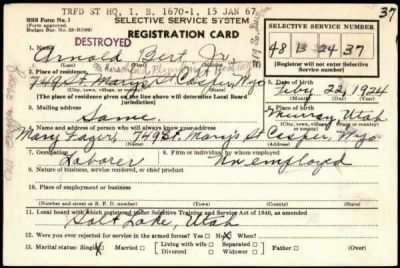 TRFD ST HQ, I. B. 1670-1, 15 JAN 67
37
SSS Form No. 1
SELECTIVE SERVICE SYSTEM
SELECTIVE SERVICE NUMBER
DESTROYED
REGISTRATION CARD
48 13 24 37
(Registrar will not enter Selective Service number)
1. Name
Arnold Bert Jr.
2. Place of residence
749 St. Mary's St Casper, Wyo
(City, town, village, or county) (State)
(The place of residence given on the line above will determine Local Board jurisdiction)
5. Date of birth
Feby 22, 1924
3. Mailing address
Same
6. Place of birth
Murray, Utah
(City, town, village, or county)
4. Name and address of person who will always know your address
Mary 749 St. Mary's St Casper, Wyo.
7. Occupation
Laborer
8. Firm or individual by whom employed
Unemployed
9. Nature of business, service rendered, or chief product
10. Place of employment or business
(Number and street or R. F. D. number) (City, town, village, or county) (State)
11. Local board with which registered under Selective Training and Service Act of 1940, as amended
Salt Lake, Utah
12. Were you ever rejected for service in the armed forces? Yes No X When?
13. Marital status: Single X Married Living with wife Divorced Separated Widower Father (Over)